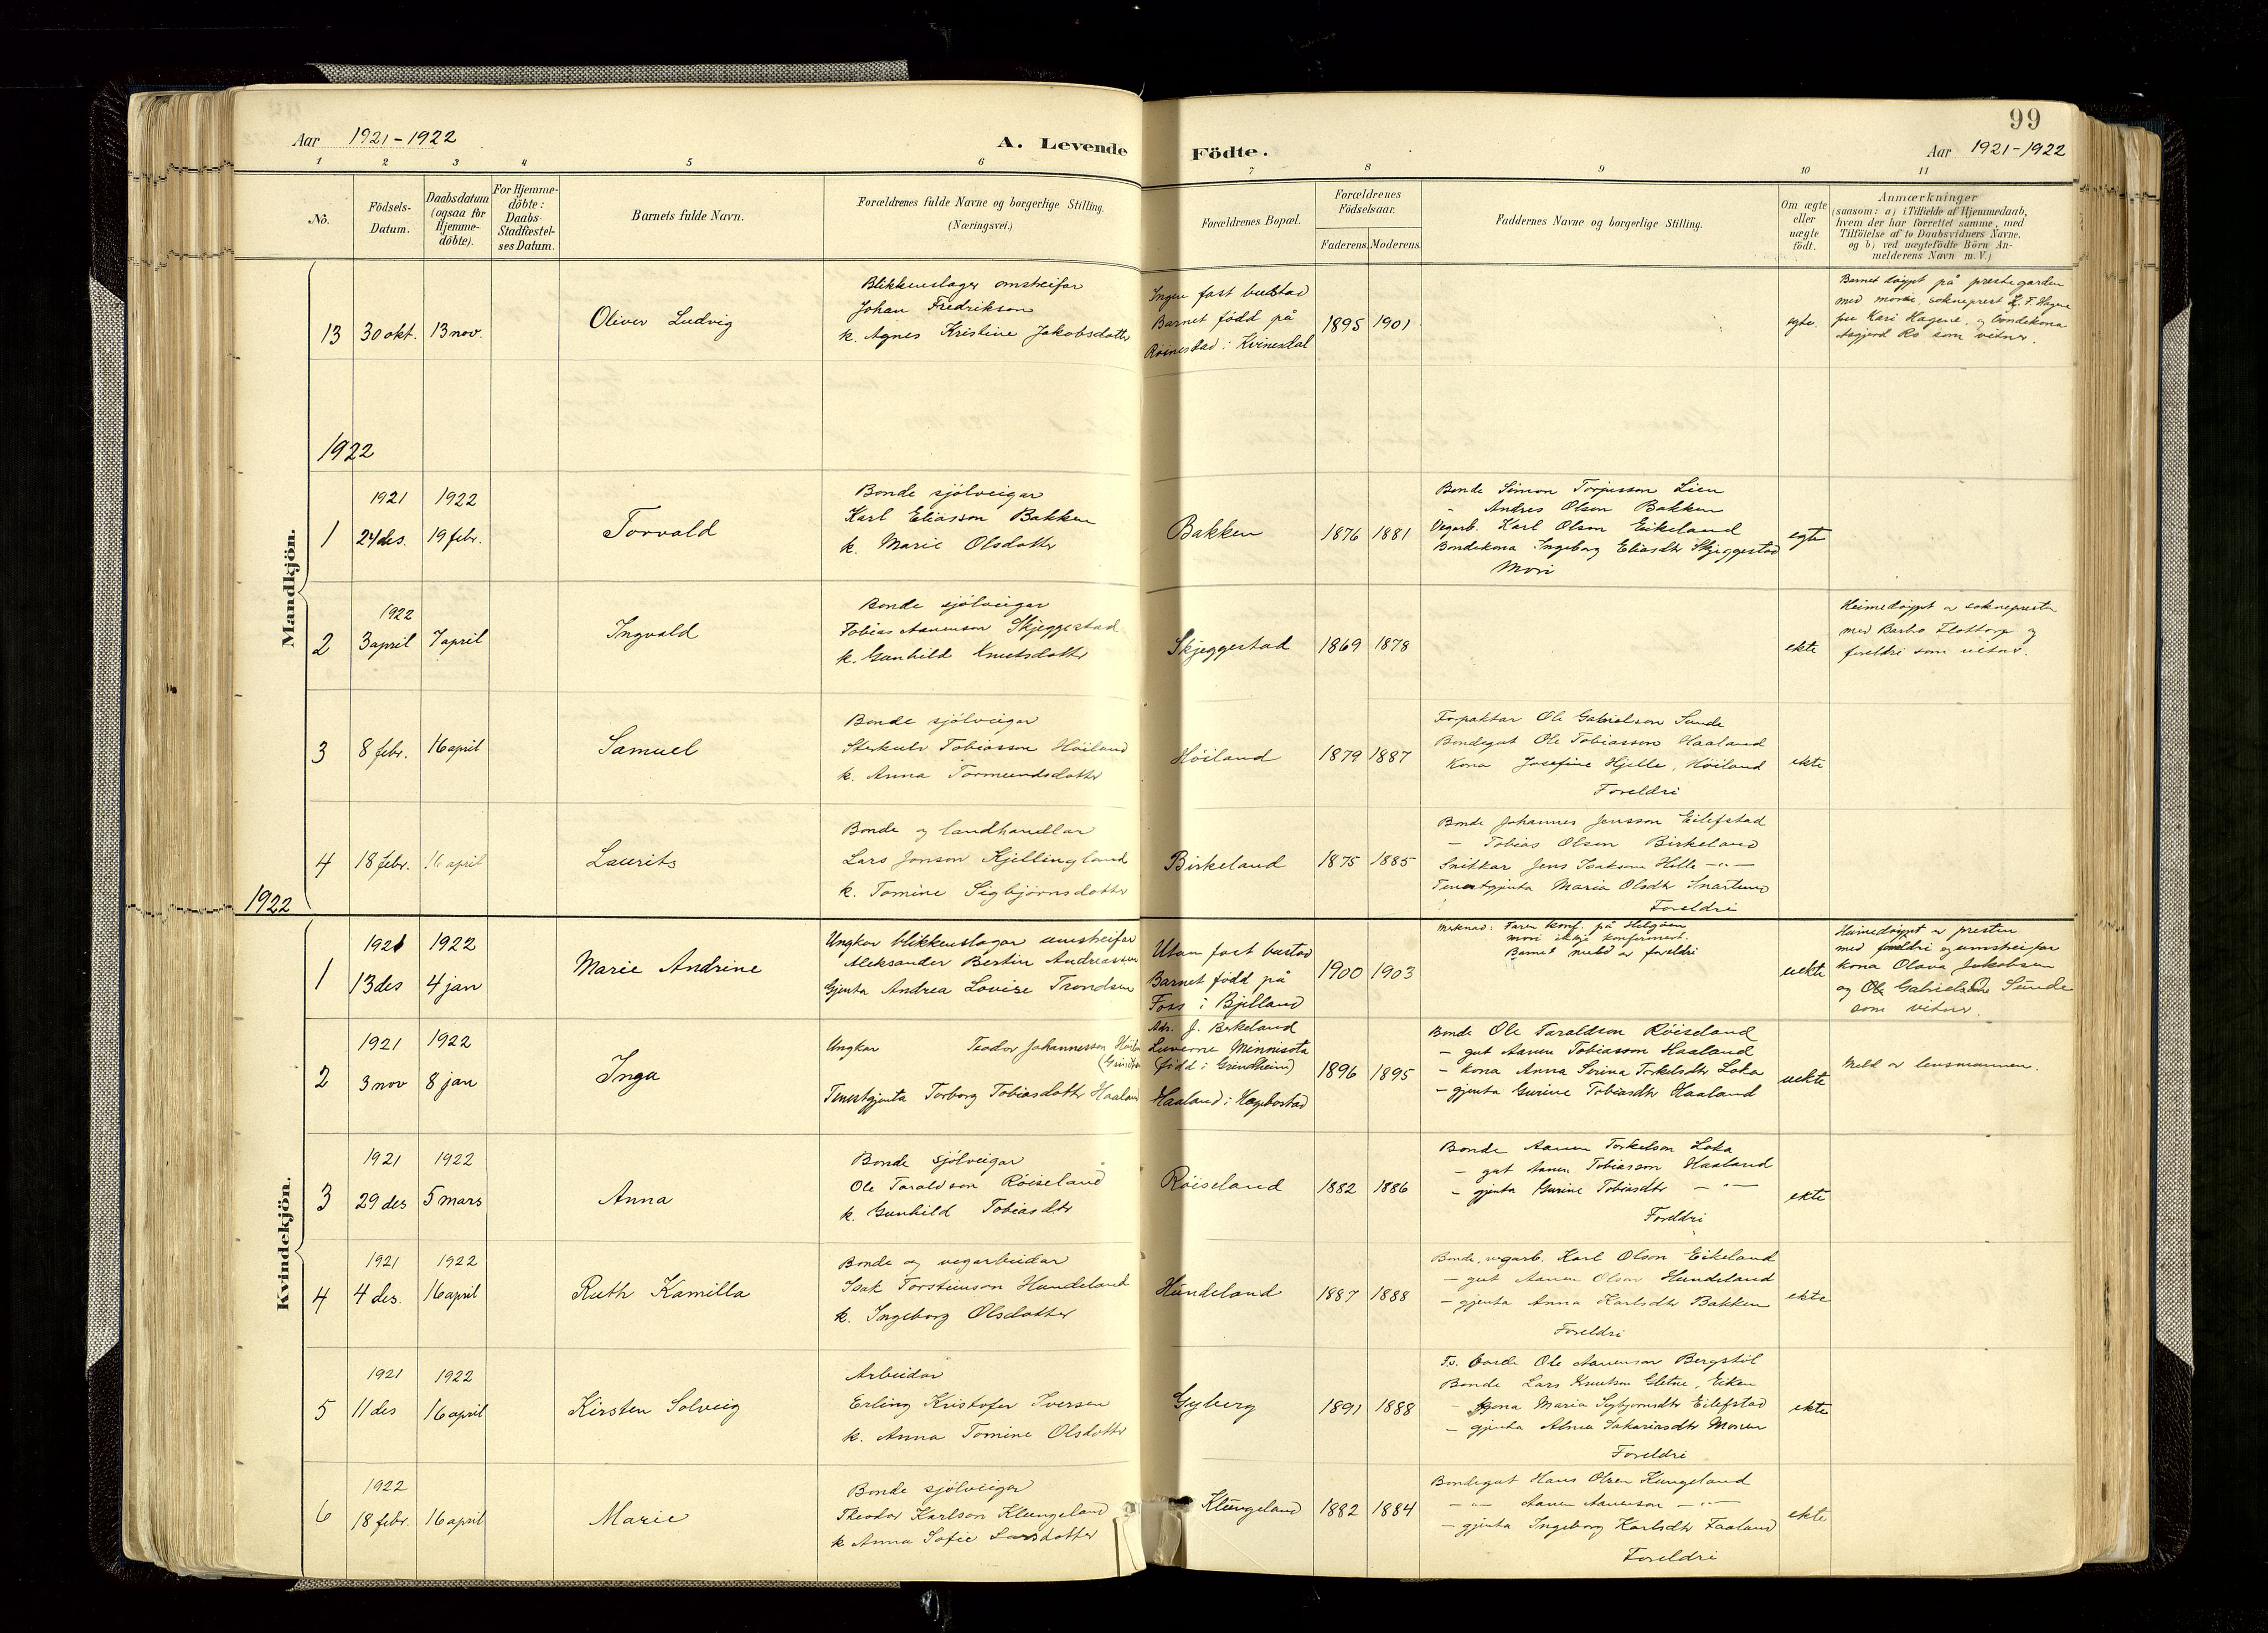 99
Aar 1921-1922
A. Levende Födte.
Aar 1921-1922
1 2 3 4 5 6 7 8 9 10 11
No.
Födsels-Datum.
Daabsdatum (ogsaa for Hjemme-döbte).
For Hjemme-döbte: Daabs-Stadfæstel-ses Datum.
Barnets fulde Navn.
Forældrenes fulde Navne og borgerlige Stilling.
(Næringsvei.)
Forældrenes Bopæl.
Forældrenes Födselsaar.
Faderens. Moderens.
Faddernes Navne og borgerlige Stilling.
Om ægte eller uægte födt.
Anmærkninger
(saasom: a) i Tilfælde af Hjemmedaab,
hvem der har forrettet samme, med
Tilföielse af to Daabsvidners Navne.
og b) ved uægtefödte Börn An-
melderens Navn m. V.)
Mandkjön.
13 30 okt. 13 nov.
Oliver Ludvig
Blikkenslager omstreifar
Johan Fredrikson
k. Agnes Kristine Jakobsdotter
Ingen fast bustad
Barnet född på
Röinestad i Kvinesdal
1895 1901
egte.
Barnet döypt på prestegarden
med mori, sokneprest Hagene
Kari Hagene og bondekona
Asgjerd Ro som vitner.
1922
1921 1922
1 24 des. 19 febr.
Torvald
Bonde sjölveigar
Karl Eliasson Bakken
k. Marie Olsdotter
Bakken
1876 1881
Bonde Simon Torjusson Lien
- Andres Olson Bakken
Vegarb. Karl Olson Eikeland
Bondekona Ingeborg Eliasdtr Skjeggestad
Mori
egte
1922
2 3 april 7 april
Ingvald
Bonde sjölveigar
Tobias Aanenson Skjeggestad
k. Gunhild Knutsdotter
Skjeggestad
1869 1878
ekte
Heimedöypt av sokneprestn
med Barbo Flottorp og
foreldri som vitner.
3 8 febr. 16 april
Samuel
Bonde sjölveigar
Tobiasson Höiland
k. Anna Tormundsdotter
Höiland
1879 1887
Forpaktar Ole Gabrielson Sunde
Bondegut Ole Tobiasson Haaland
Kona Josefine Hjelle, Höiland
Foreldri
ekte
4 18 febr. 16 april
Laurits
Bonde og landhandlar
Lars Jonson Kjellingland
k. Tomine Sigbjörnsdotter
Birkeland
1875 1885
Bonde Johannes Jensson Eilefstad
- Tobias Olsen Birkeland
Snikkar Jens Isakson Hille -"-
Tenestgjenta Maria Olsdtr Snartemo
Foreldri
1922
Kvindekjön.
1921 1922
1 13 des 4 jan
Marie Andrine
Ungkar blikkenslagar umstreifar
Aleksander Bertin Andreassen
Gjenta Andrea Lovise Trondsen
Utan fast bustad
Barnet född på
Foss i Bjelland
1900 1903
Merknad: Faren konf. på Helgöen
mori ikkje konfirmert.
Barnet meld av foreldri
uekte
Heimedöypt av presten
med foreldri og umstreifar
kona Olava Jakobsen
og Ole Gabrielson Sunde
som vitner.
1921 1922
2 3 nov 8 jan
Inga
Ungkar Teodor Johannesson
Tenestgjenta Torborg Tobiasdotter Haaland
Adr. J. Birkeland
Luverne Minnisota
(född i Grindheim)
Haaland i Hægebostad
1896 1895
Bonde Ole Taraldson Röiseland
- gut Aanen Tobiasson Haaland
- kona Anna Serina Torkelsdtr Loka
- gjenta Gurine Tobiasdtr Haaland
uekte
Meld av lensmannen.
1921 1922
3 29 des 5 mars
Anna
Bonde sjölveigar
Ole Taraldson Röiseland
k. Gunhild Tobiasdtr
Röiseland
1882 1886
Bonde Aanen Torkelson Loka
- gut Aanen Tobiasson Haaland
- gjenta Gurine Tobiasdtr -"-
Foreldri
ekte
1921 1922
4 4 des. 16 april
Ruth Kamilla
Bonde og vegarbeidar
Isak Torsteinson Hundeland
k. Ingeborg Olsdotter
Hundeland
1887 1888
Bonde, vegarb. Karl Olson Eikeland
- gut Aanen Olson Hundeland
- gjenta Anna Karlsdtr Bakken
Foreldri
ekte
1921 1922
5 11 des 16 april
Kirsten Solveig
Arbeidar
Erling Kristofer Iversen
k. Anna Tomine Olsdotter
Gyberg
1891 1888
Ole Aanenson Bergstöl
Bonde Lars Knutson Gletne, Eiken
- kona Maria Sigbjornsdtr Eilefstad
- gjenta Alma Sakariasdtr Monen
Foreldri
ekte
1922
6 18 febr. 16 april
Marie
Bonde sjölveigar
Theodor Karlson Klungeland
k Anna Sofie Larsdotter
Klungeland
1882 1884
Bondegut Hans Olsen Klungeland
-"- Aanen Aanenson -"-
- gjenta Ingeborg Karlsdtr Faaland
Foreldri
ekte